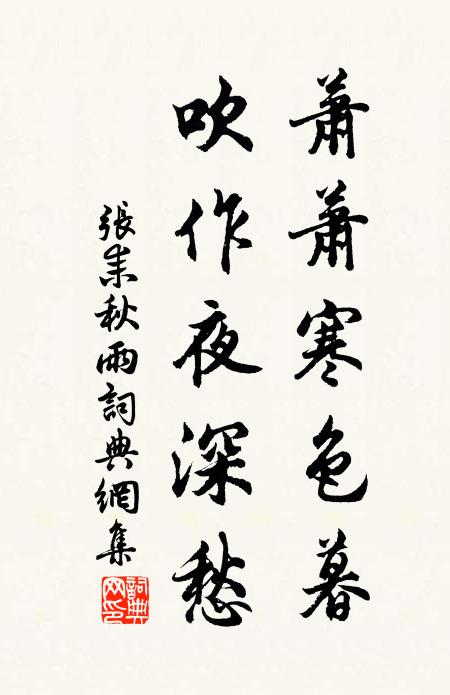 蕭蕭寒色暮
吹作夜深愁
張耒秋雨詞典網集
詞典
网印